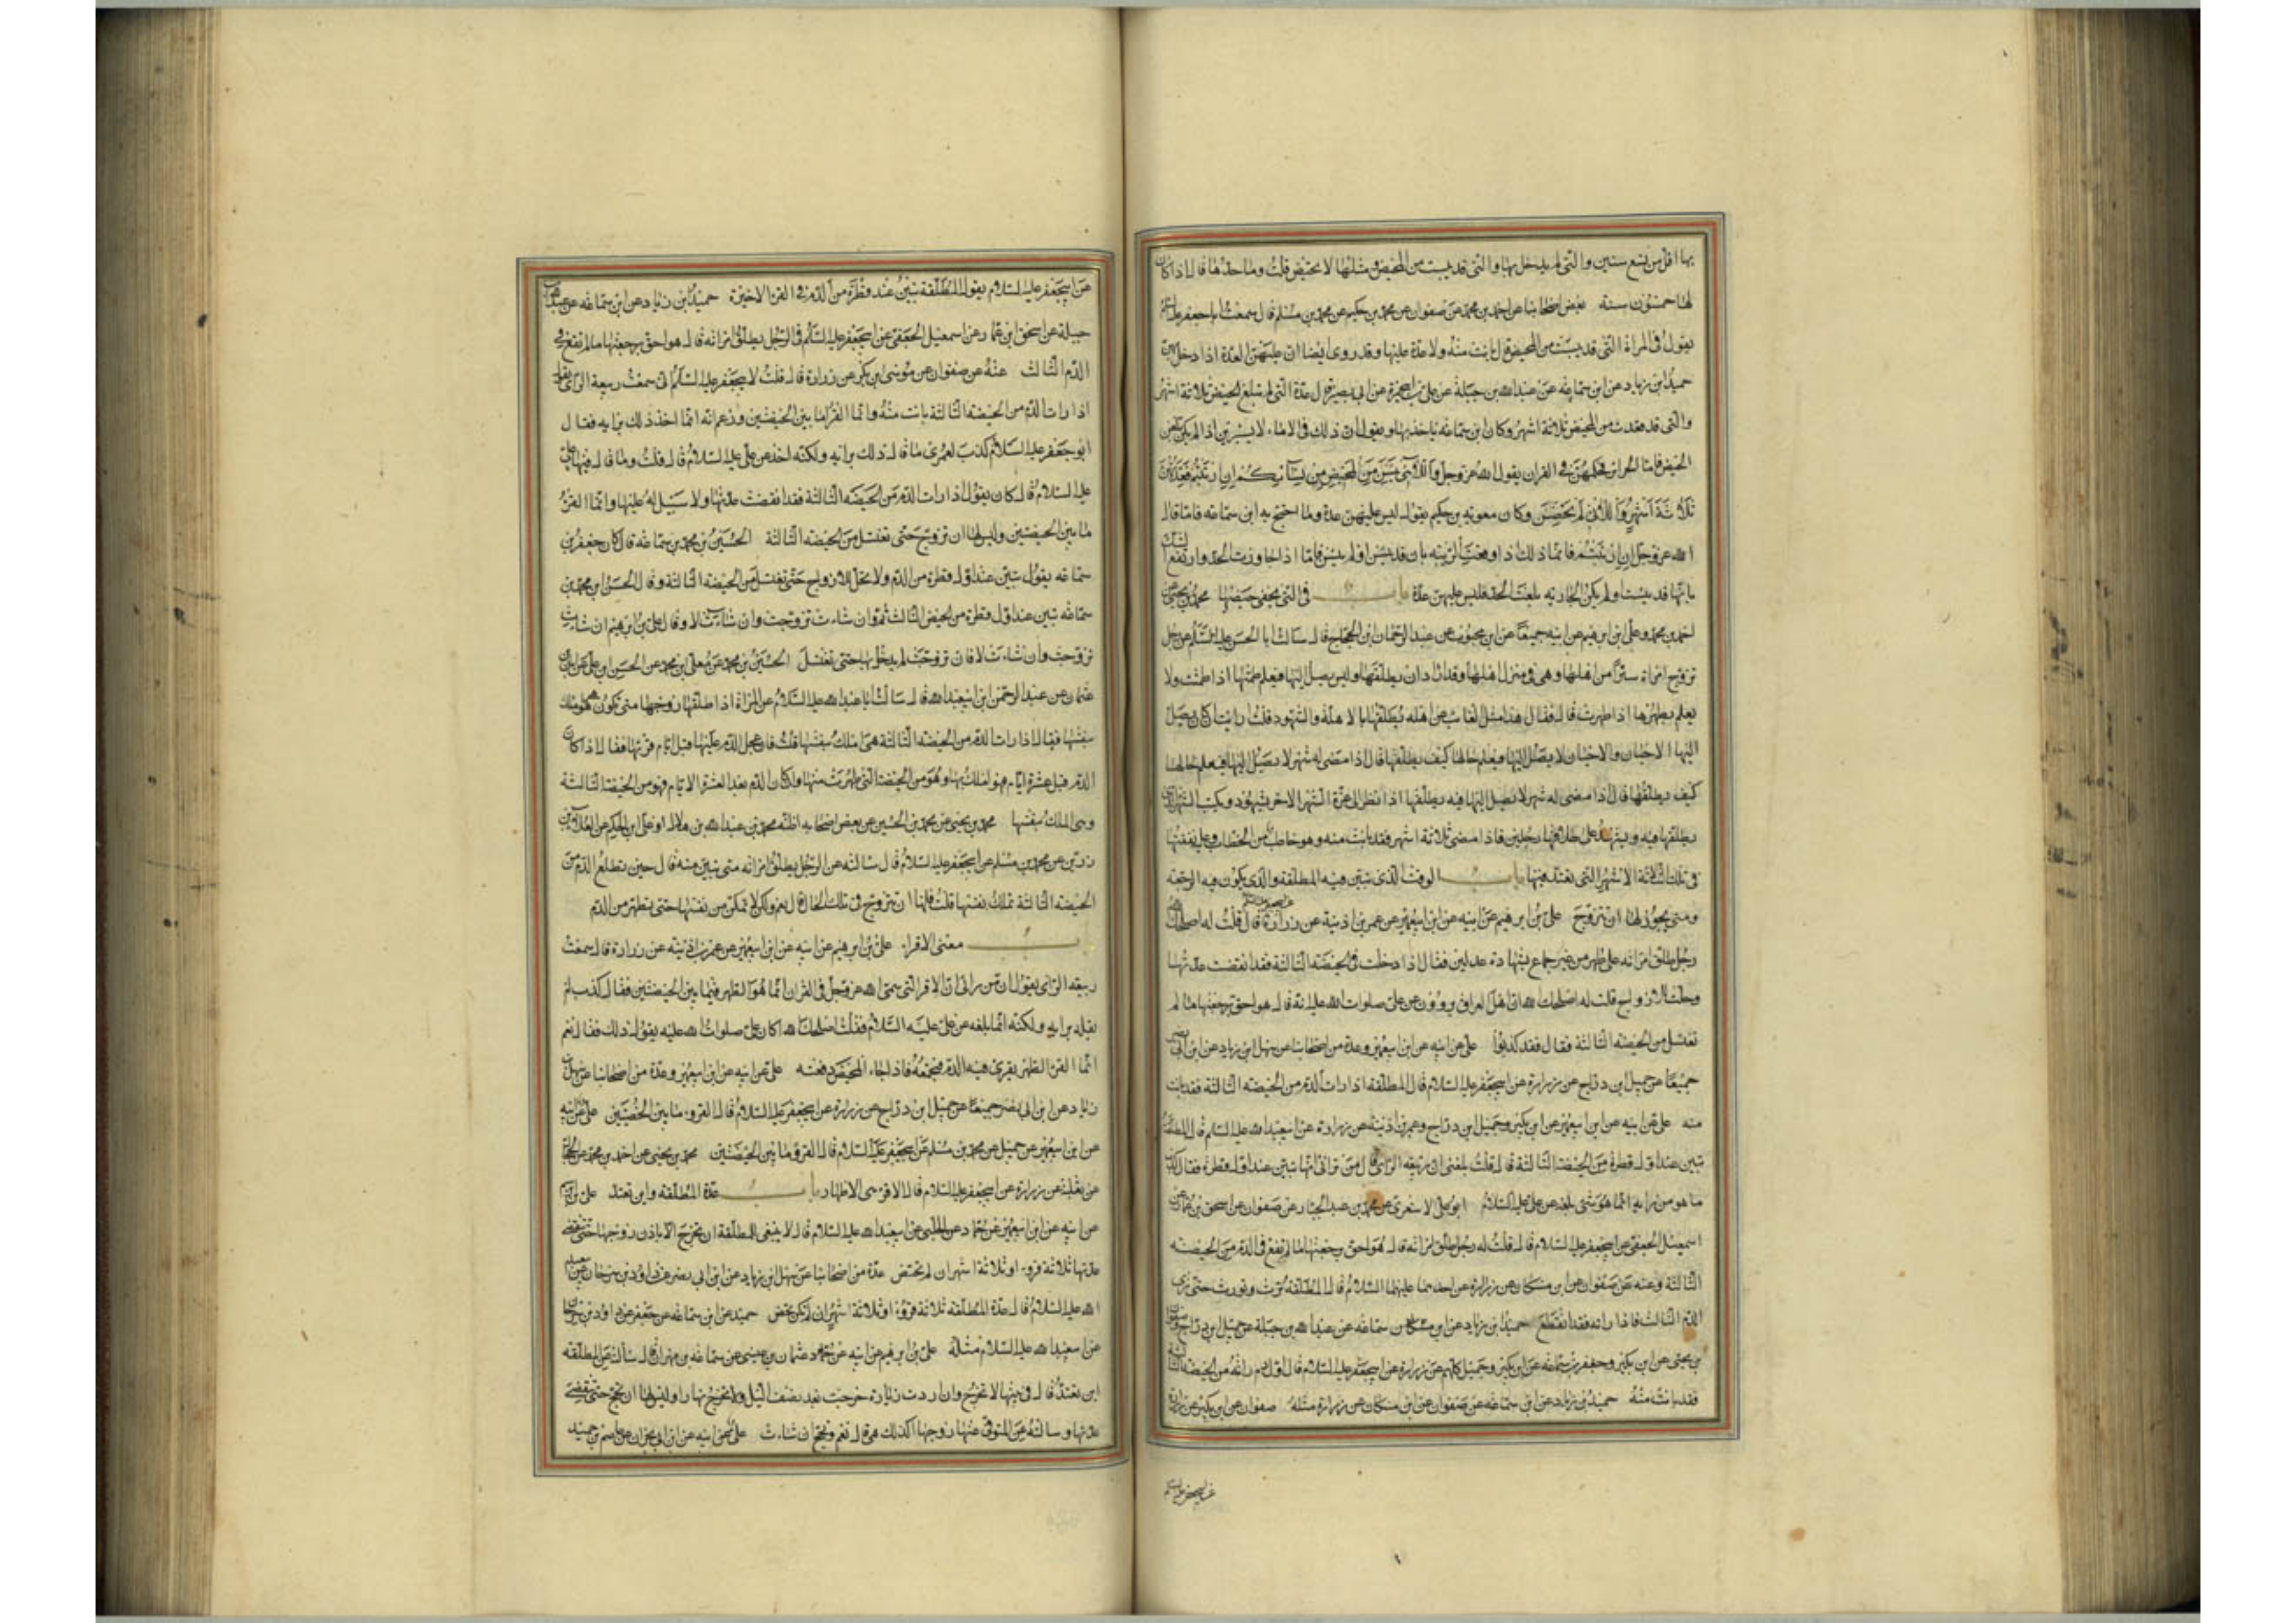 بها اقل من تسع سنين والتى لم يدخل بها والتى قد يئست من المحيض ومثلها لا تحيض قلت وما حدها قال اذا كان
لها خمسون سنة بعض اصحابنا عن احمد بن محمد عن صفوان عن محمد بن حكيم عن محمد بن مسلم قال سمعت ابا جعفر عليه السلم
يقول فى المراة التى قد يئست من المحيض قال بانت منه ولا عدة عليها وقد روى ايضا ان عليهن العدة اذا دخل بهن
حميد ابن زياد عن ابن سماعه عن عبد الله بن جبلة عن على بن ابى حمزة عن ابى بصير قال عدة التى لم تبلغ الحيض ثلاثة اشهر
والتى قد قعدت من المحيض ثلاثة اشهر وكان ابن سماعه ياخذ بها ويقول ان ذلك فى الاماء لا يستبرين اذا لم يكن بلغن
الحيض فاما الحراير فحكمهن فى القران يقول الله عز وجل واللائى يئسن من المحيض من نسائكم ان ارتبتم فعدتهن
ثلاثة اشهر واللائى لم يحضن وكان معوية بن حكيم يقول ليس عليهن عدة وما احتج به ابن سماعه فانما قال
الله عز وجل ان ارتبتم فانما ذلك اذا وقعت الريبة بان قد يئسن او لم يئسن فاما اذا جاوزت الحد وارتفع الشك
بانها قد يئست او لم يكن الجارية بلغت الحد فليس عليهن عدة باب فى التى يخفى حيضها محمد بن يحيى عن
احمد بن محمد وعلى ابن ابرهيم عن ابيه جميعا عن ابن محبوب عن عبد الرحمان ابن الحجاج قال سالت ابا الحسن عليه السلم عن رجل
تزوج امراة سرا من اهلها وهى فى منزل اهلها وقد اراد ان يطلقها وليس يصل اليها فيعلم طمثها اذا طمثت ولا
يعلم بطهرها اذا طهرت قال فقال هذا مثل الغائب عن اهله يطلقها بالاهلة والشهود قلت ارايت ان كان يصل
اليها الاحيان والاحيان لا يصل اليها فيعلم حالها كيف يطلقها قال اذا مضى له شهر لا يصل اليها فيه يعلم حالها
كيف يطلقها قال اذا مضى له شهر لا يصل اليها فيه يطلقها اذا نظر الى غرة الشهر الاخر بشهود ويكتب الشهر الذى
يطلقها فيه ويشهد على طلاقها رجلين فاذا مضى ثلاثة اشهر فقد بانت منه وهو خاطب من الخطاب وعليه نفقتها
فى تلك الثلثة الاشهر التى تعتد فيها باب الوقت الذى تبين فيه المطلقة والذى يكون فيه الرجعة
ومتى يجوز لها ان تتزوج على بن ابرهيم عن ابيه عن ابن ابى عمير عن عمر بن اذينة عن زرارة قال قلت له اصلحك الله
رجل طلق امراته على طهر من غير جماع بشهادة عدلين فقال اذا دخلت فى الحيضة الثالثة فقد انقضت عدتها
وحلت للازواج قلت له اصلحك الله ان اهل العراق يروون عن على صلوات الله عليه انه قال هو احق برجعتها ما لم
تغتسل من الحيضة الثالثة فقال فقد كذبوا على عن ابيه عن ابن ابى عمير وعدة من اصحابنا عن سهل ابن زياد عن ابن ابى نصر
جميعا عن جميل ابن دراج عن زرارة عن ابى جعفر عليه السلام قال المطلقة اذا رات الدم من الحيضة الثالثة فقد بانت
منه على عن ابيه عن ابن ابى عمير عن ابن بكير وجميل ابن دراج وعمر بن اذينة عن زرارة عن ابى عبد الله عليه السلم قال المطلقة
تبين عند اول قطرة من الحيضة الثالثة قال قلت بلغنى ان ربيعه الراى قال من رائى انها تبين عند اول قطرة فقال كذب
ما هو من رايه انما هو شى بلغه عن على عليه السلام ابو على الاشعرى عن محمد بن عبد الجبار عن صفوان عن اسحق بن عمار عن
اسمعيل الجعفى عن ابى جعفر عليه السلام قال قلت له رجل طلق امراته قال هو احق برجعتها ما لم تقع فى الدم من الحيضة
الثالثة وعنه عن صفوان عن ابن مسكان عن زرارة عن احدهما عليهما السلام قال المطلقة ترث وتورث حتى ترى
الدم الثالث فاذا راته فقد انقطع حميد ابن زياد عن ابن سماعه عن عبد الله بن جبلة عن جميل ابن دراج وصفوان
بن يحيى عن ابن بكير وجعفر بن سماعه عن ابن بكير وجميل كلهم عن زرارة عن ابى جعفر عليه السلام قال اول دم راته من الحيضة الثالثة
فقد بانت منه حميد بن زياد عن ابن سماعه عن صفوان عن ابن مسكان عن زرارة مثله صفوان عن ابن بكير عن زرارة
عن ابى جعفر عليه السلم
عن ابى جعفر عليه السلام يقول المطلقة تبين عند قطرة من الدم فى القرء الاخيرة حميد ابن زياد عن ابن سماعه عن عبد الله بن
جبلة عن اسحق ابن عمار عن اسمعيل الجعفى عن ابى جعفر عليه السلم فى الرجل يطلق امراته قال هو احق برجعتها ما لم تقع فى
الدم الثالث عنه عن صفوان عن موسى ابن بكر عن زرارة قال قلت لابى جعفر عليه السلم انى سمعت ربيعة الراى يقول
اذا رات الدم من الحيضة الثالثة بانت منه وانما القرء ما بين الحيضتين وزعم انه انما اخذ ذلك برايه فقال
ابو جعفر عليه السلام كذب لعمرى ما قال ذلك برايه ولكنه اخذه عن على عليه السلام قال قلت وما قال فيها على
عليه السلام قال كان يقول اذا رات الدم من الحيضة الثالثة فقد انقضت عدتها ولا سبيل له عليها وانما القرء
ما بين الحيضتين وليس لها ان تزوج حتى تغتسل من الحيضة الثالثة الحسين بن محمد بن سماعه قال كان جعفر بن
سماعه يقول تبين عند اول قطرة من الدم ولا تحل للازواج حتى تغتسل من الحيضة الثالثة وقال الحسن ابن محمد بن
سماعه تبين عند اول قطرة من الحيض الثالث ثم ان شاءت تزوجت وان شاءت لا وقال على بن ابرهيم ان شاءت
تزوجت وان شاءت لا فان تزوجت لم يدخل بها حتى تغتسل الحسين بن محمد عن معلى ابن محمد عن الحسن ابن على عن ابان بن
عثمان عن عبد الرحمن ابن ابى عبد الله قال سالت ابا عبد الله عليه السلام عن المراة اذا طلقها زوجها متى تكون هى املك
بنفسها فقال اذا رات الدم من الحيضة الثالثة هى املك بنفسها قلت فان عجل الدم عليها قبل ايام قرئها فقال اذا كان
الدم قبل عشرة ايام فهو املك بها وهو من الحيضة التى طهرت منها وان كان الدم بعد العشرة الايام فهو من الحيضة الثالثة
وهى املك بنفسها محمد بن يحيى عن محمد بن الحسين عن بعض اصحابه اظنه محمد بن عبد الله بن هلال او على ابن الحكم عن العلا بن
رزين عن محمد بن مسلم عن ابى جعفر عليه السلام قال سالته عن الرجل يطلق امراته متى تبين منه قال حين يطلع الدم من
الحيضة الثالثة تملك نفسها قلت فلها ان تتزوج فى تلك الحال قال نعم ولكن لا تمكن من نفسها حتى تطهر من الدم
باب معنى الاقراء على بن ابرهيم عن ابيه عن ابن ابى عمير عن عمر بن اذينة عن زرارة قال سمعت
ربيعه الراى يقول ان من رائى ان الاقراء التى سمى الله عز وجل فى القران انما هو الطهر فيما بين الحيضتين فقال كذب لم
يقله برايه ولكنه انما بلغه عن على عليه السلام فقلت اصلحك الله اكان على صلوات الله عليه يقول ذلك فقال نعم
انما القرء الطهر يقرى فيه الدم فيجمعه فاذا جاء المحيض دفعه على عن ابيه عن ابن ابى عمير وعدة من اصحابنا عن سهل بن
زياد عن ابن ابى نصر جميعا عن جميل ابن دراج عن زرارة عن ابى جعفر عليه السلام قال القرو ما بين الحيضتين على عن ابيه
عن ابن ابى عمير عن جميل عن محمد بن مسلم عن ابى جعفر عليه السلام قال القرو ما بين الحيضتين محمد بن يحيى عن احمد بن محمد عن الحجال
عن ثعلبة عن زرارة عن ابى جعفر عليه السلام قال الاقراء هى الاطهار باب عدة المطلقة واين تعتد على بن ابرهيم
عن ابيه عن ابن ابى عمير عن حماد عن الحلبى عن ابى عبد الله عليه السلام قال لا ينبغى للمطلقة ان تخرج الا باذن زوجها حتى تنقضى
عدتها ثلاثة قروء او ثلاثة اشهر ان لم تحض عدة من اصحابنا عن سهل ابن زياد عن ابن ابى نصر عن داود بن سرحان عن ابى عبد
الله عليه السلام قال عدة المطلقة ثلاثة قروء او ثلاثة اشهر ان لم تكن تحض حميد عن ابن سماعه عن جعفر عن داود بن سرحان
عن ابى عبد الله عليه السلام مثله على بن ابرهيم عن ابيه عن عثمان بن عيسى عن سماعه بن مهران قال سالته عن المطلقة
اين تعتد قال فى بيتها لا تخرج وان اردت زيارة خرجت بعد نصف الليل ولا تخرج نهارا وليس لها ان تحج حتى تنقضى
عدتها وسالته عن المتوفى عنها زوجها اكذلك هى قال نعم وتحج ان شاءت على عن ابيه عن ابن ابى نجران عن عاصم بن حميد